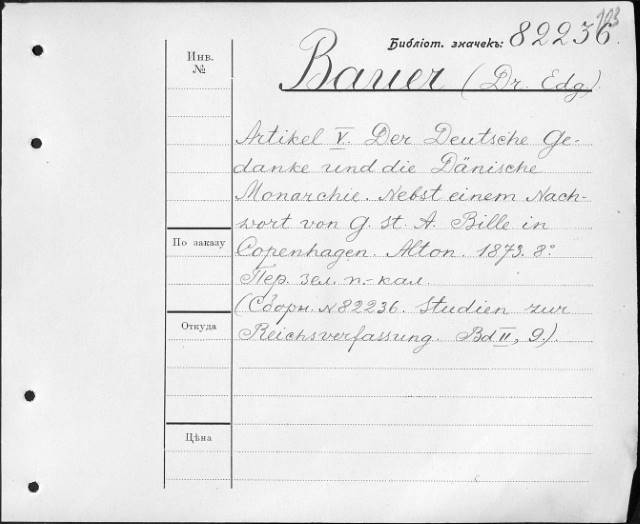 103
Библіот. значекъ: 82236.
Инв.
№
Bauer (Dr. Edg.)
Artikel V. Der Deutsche Ge-
danke und die Dänische
Monarchie. Nebst einem Nach-
wort von G. St. A. Bille in
По заказу
Copenhagen. Alton. 1873. 8°
Пер. зел. п.-кал.
(Сборн. № 82236. Studien zur
Откуда
Reichsverfassung. Bd II, 9.)
Цѣна